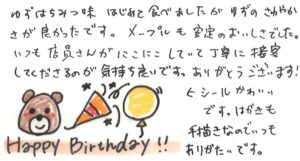 ゆずはちみつ味 はじめて食べましたが ゆずの さわやか
さが良かったです。 メープルも 安定のおいしさでした。
いつも 店員さんが にこにこ していて 丁寧に 接客
してくださるのが 気持ち良いです。ありがとうございます!
ヒシールかわいい
です。はがきも
手描きなのでいつも
ありがたいです。
Happy Birthday !!